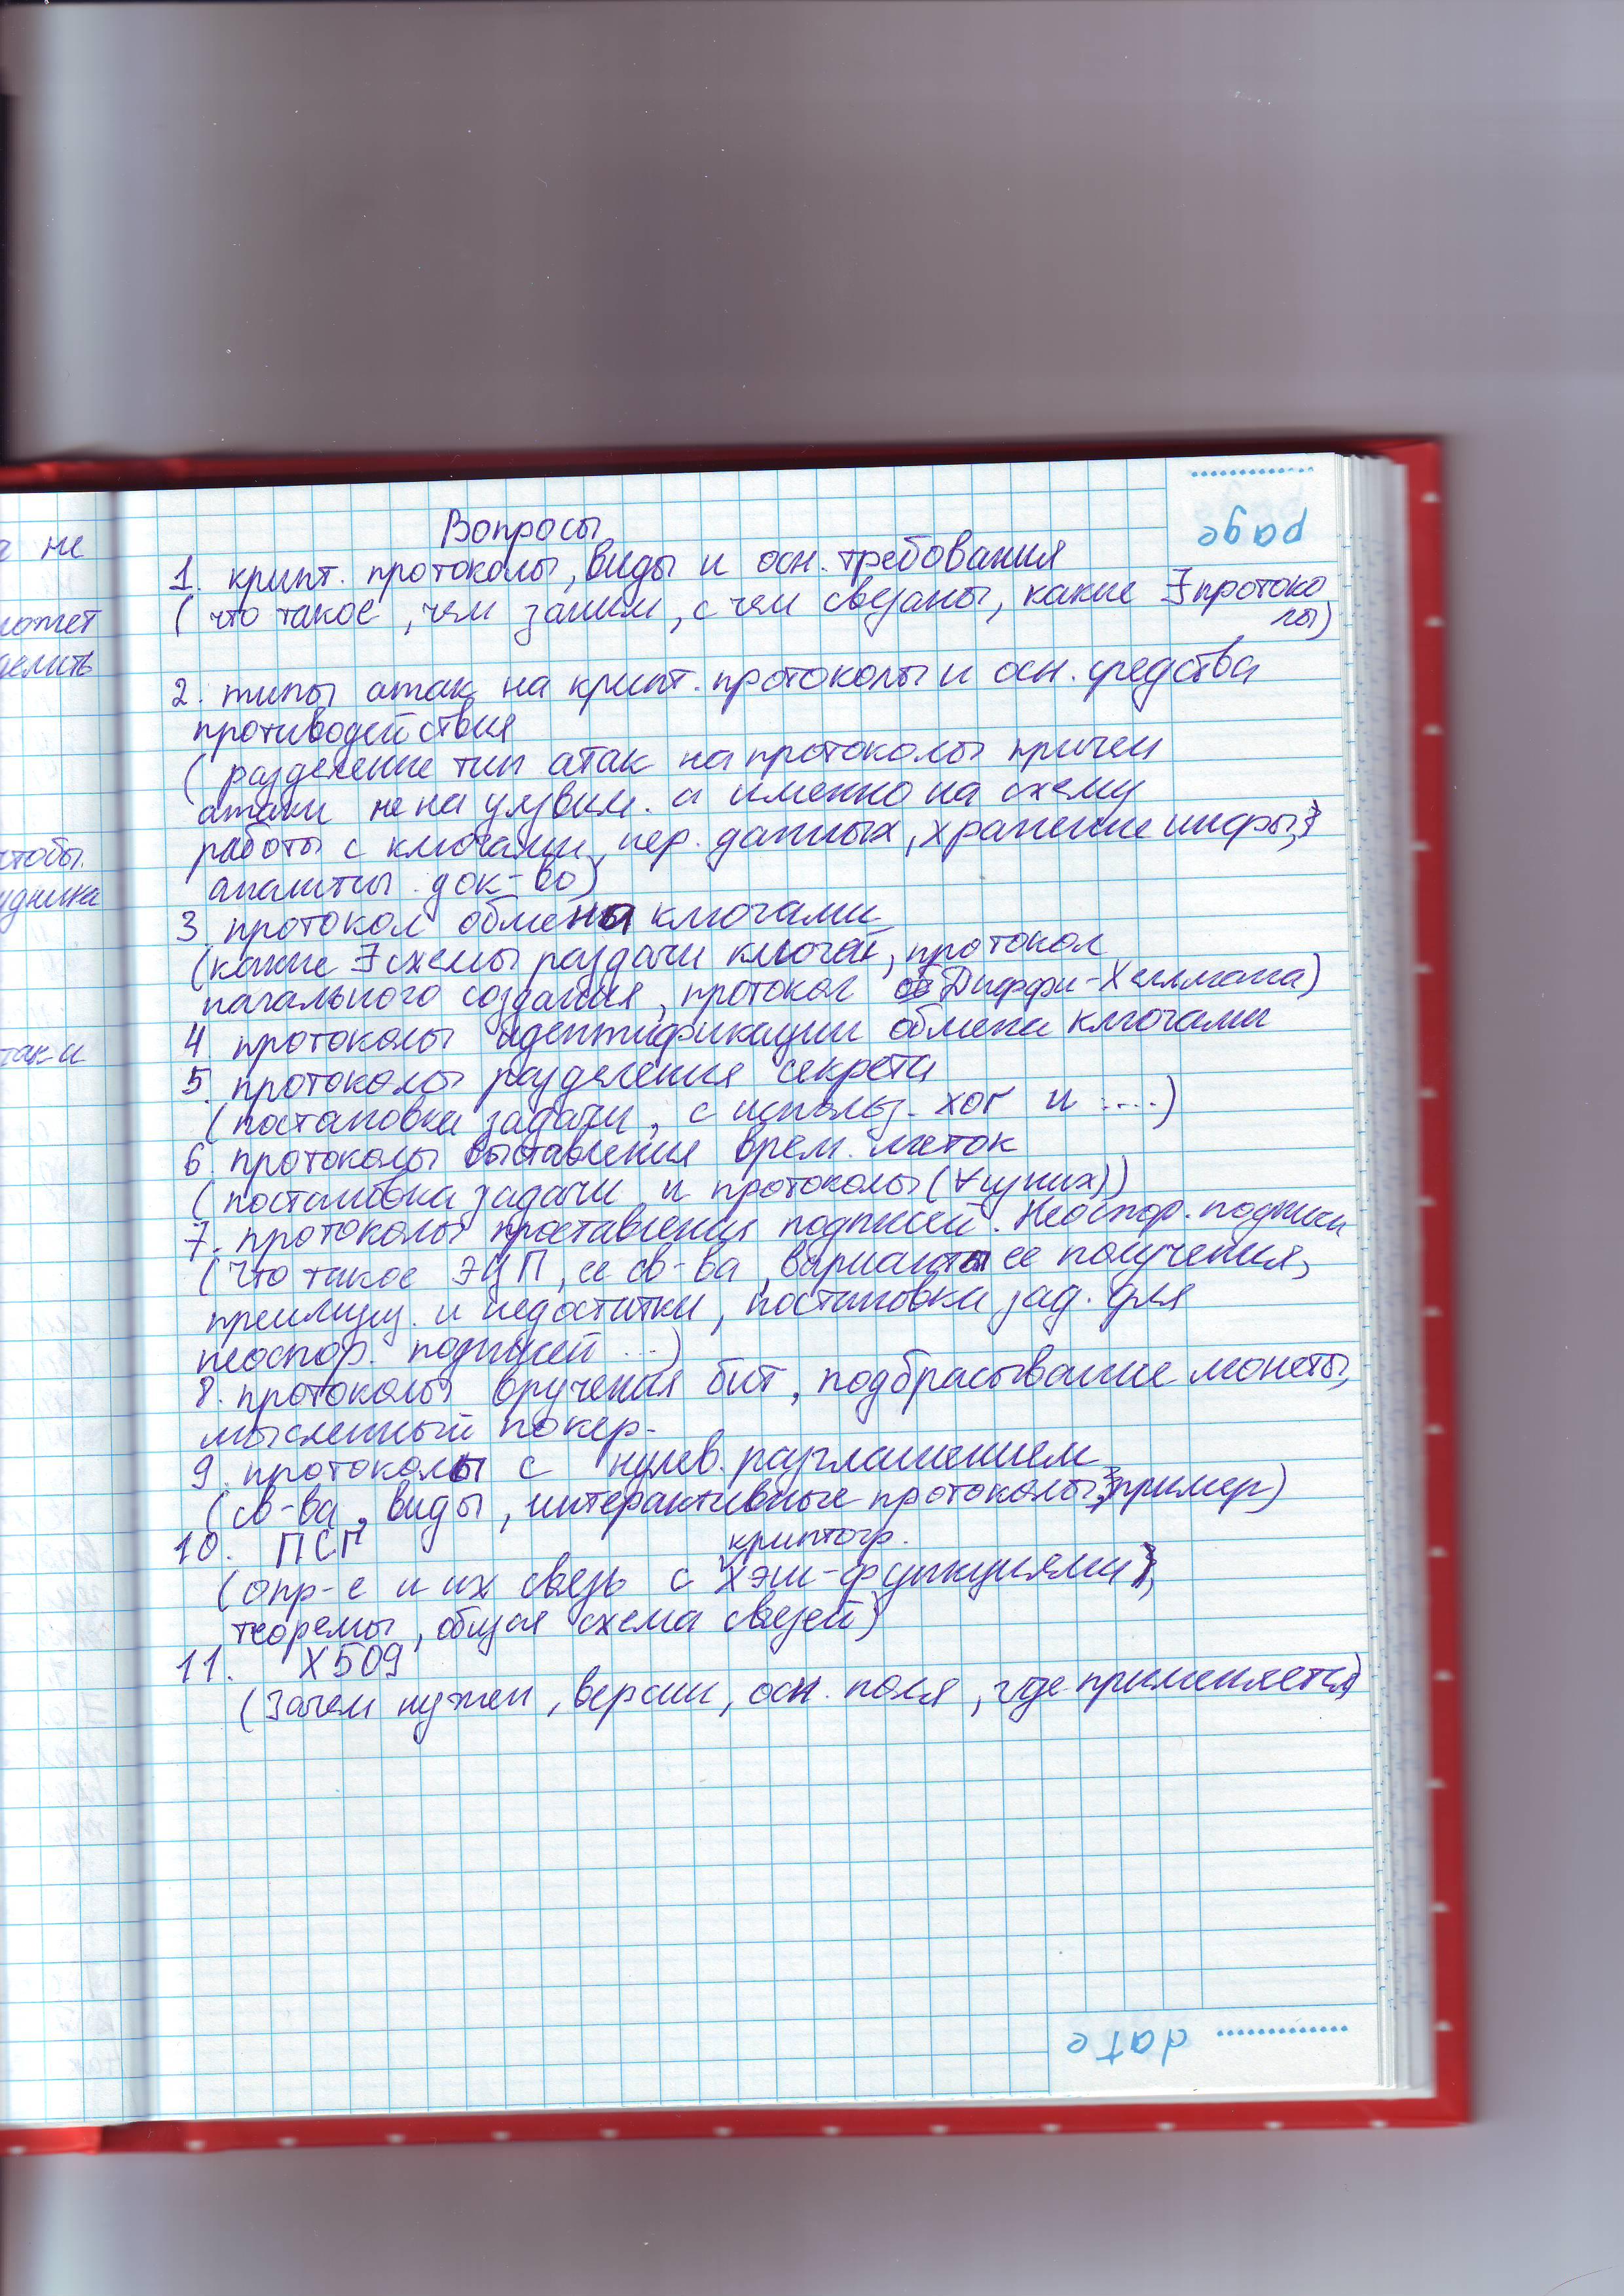 Вопросы
1. крипт. протоколы, виды и осн. требования
( что такое, чем заним, с чем связаны, какие ∃ протоко
лы)
2. типы атак на крипт. протоколы и осн. средства
противодействия
( разделение тип атак на протоколы причем
атаки не на уязвим. а именно на схему
работы с ключами, пер. данных, хранение инфры,
аналитич. док-во)
3 протокол обмены ключами
(какие ∃ схемы раздачи ключей, протокол
начального создания, протокол Диффи-Хеллмана)
4 протоколы идентификации обмена ключами
5. протоколы разделения секрета
(постановка задачи, с использ. xor и ....)
6. протоколы выставления врем. меток
(постановка задачи и протоколы (∀ из них))
7. протоколы проставления подписей. Неоспор. подписи
(что такое ЭЦП, ее св-ва, варианты ее получения,
преимущ. и недостатки, постановка зад. для
неоспор. подписей ...)
8. протоколы вручения бит, подбрасывание монеты,
мысленный покер.
9. протоколы с нулев. разглашением
(св-ва, виды, интерактивные протоколы, пример)
10. ПСП
криптогр.
(опр-е и их связь с хэш-функциями,
теоремы, общая схема связей)
11. X509
(Зачем нужен, версии, осн. поля, где применяется)
page
date
не
чтобы